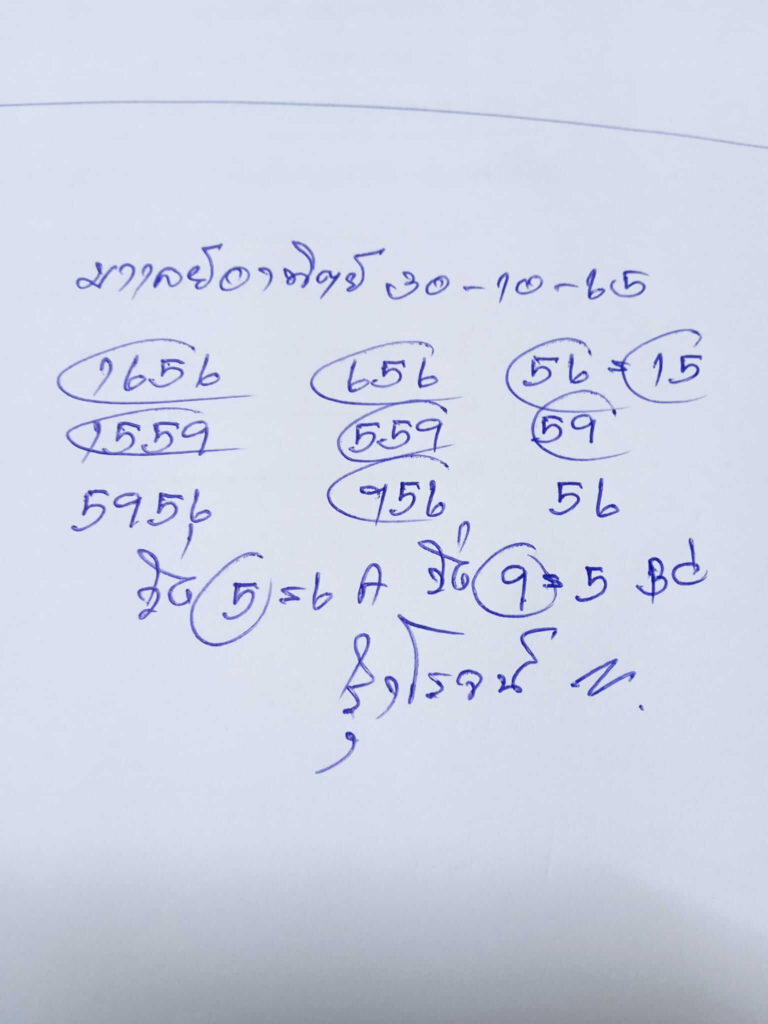 มาเลย์อาทิตย์ 30-10-65
1656 656 56=15
1559 559 59
5956 956 56
วิ่ง 5=6 A วิ่ง 9=5 Bd
รุ่งโรจน์